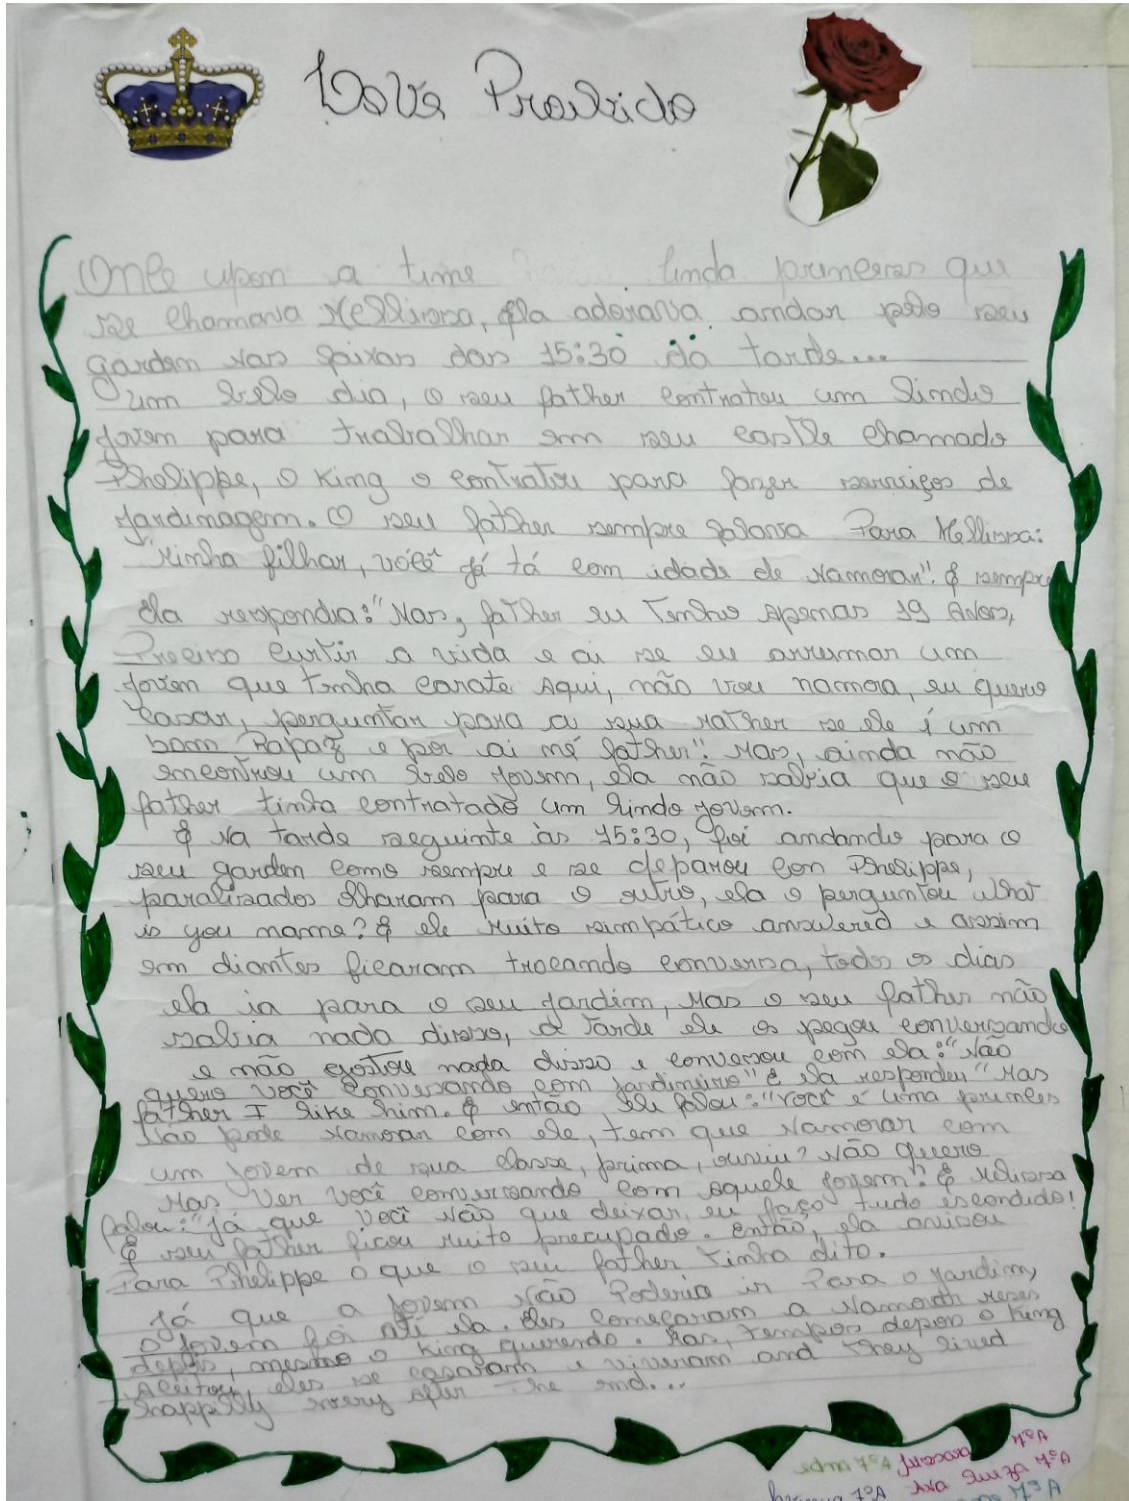 Love Proibido
Once upon a time linda princesas que
se chamava Mellissa, Ela adorava andar pelo seu
garden nas faixas das 15:30 da tarde...
Um belo dia, o seu father contratou um lindo
jovem para trabalhar em seu castle chamado
Phelippe, o King o contratou para fazer serviços de
jardinagem. O seu father sempre falava Para Mellissa:
"Minha filhar, você já tá com idade de namorar". E sempre
ela respondia: "Mas, father eu Tenho apenas 19 Anos,
Preciso curtir a vida e ai se eu arrumar um
jovem que tenha carate Aqui, não vou namora, eu quero
casar, perguntar para a sua rather se ele é um
bom Rapaz e por ai né father". Mas, ainda não
encontrou um belo jovem, ela não sabia que o seu
father tinha contratado um lindo jovem.
E Na tarde seguinte às 15:30, foi andando para o
seu garden como sempre e se deparou con Phelippe,
paralisados olharam para o outro, ela o perguntou what
is you name? E ele Muito simpático answered e assim
em diantes ficaram trocando conversa, todos os dias
ela ia para o seu jardim, Mas o seu father não
sabia nada disso, a Tarde ele os pegou conversando
e não gostou nada disso e conversou com ela: "Não
quero você conversando com jardineiro" E ela respondeu "Mas
father I like him. E então, ele falou: "você é uma princes
Não pode Namorar com ele, tem que Namorar com
um jovem de sua classe, prima, ouviu? Não quero
Mas Ver você conversando com aquele jovem". E Melissa
falou: "Já que você Não que deixar, eu faço tudo escondido!
E seu father ficou Muito precupado. Então, ela avisou
Para Phelippe o que o seu father Tinha dito.
Já que a jovem Não Poderia ir Para o jardim,
o jovem foi até ela. Eles começaram a Namorar meses
depois, mesmo o King querendo. Mas, Tempos depois o King
aceitou, eles se casaram e viveram and They lived
happilly every after The end...
edna 7ºA Jussara 7ºA
7ºA Ana Luiza 7ºA
7ºA